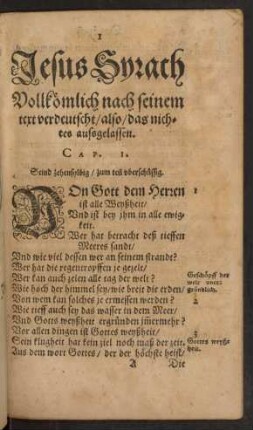 1
Jesus Syrach
Vollkömlich nach seinem
text verdeutscht / also / das nich-
tes ausgelassen.
CAP. I.
Seind zehensylbig / zum teil vberschüssig.
VOn Gott dem Herren 1
ist alle Weyßheit /
Vnd ist bey jhm in alle ewig-
keit.
Wer hat betracht deß tieffen
Meeres sandt /
Vnd wie viel dessen wer an seinem strandt?
Wer hat die regentropffen je gezeit /
Wer kan auch zelen alle tag der welt?
Wie hoch der himmel sey / wie breit die erden /
Von wem kan solches je ermessen werden?
Wie tieff auch sey das wasser in dem Meer /
Vnd Gotts weyßheit ergründen jmermehr?
Vor allen dingen ist Gottes weyßheit /
Sein klugheit hat kein ziel noch maß der zeit.
Aus dem wort Gottes / der der höchste heist /
A Die
Geschöpff der
welt vner-
gründlich.
2
3
Gottes weyß-